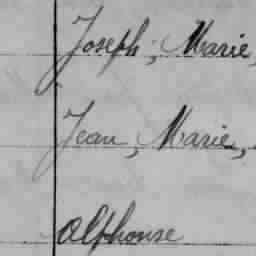 Joseph, Marie,
Jean, Marie,
Alphonse